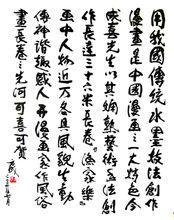 用我國傳統水墨技法創作
漫畫是中國漫畫一大特色今
咸喜先生以其嫻熟藝術手法創
作長達三十六米長卷漁家樂
畫中人物近万各具風貌生動
傳神諧趣感人再漫畫家作風俗
畫長卷之先河可喜可賀